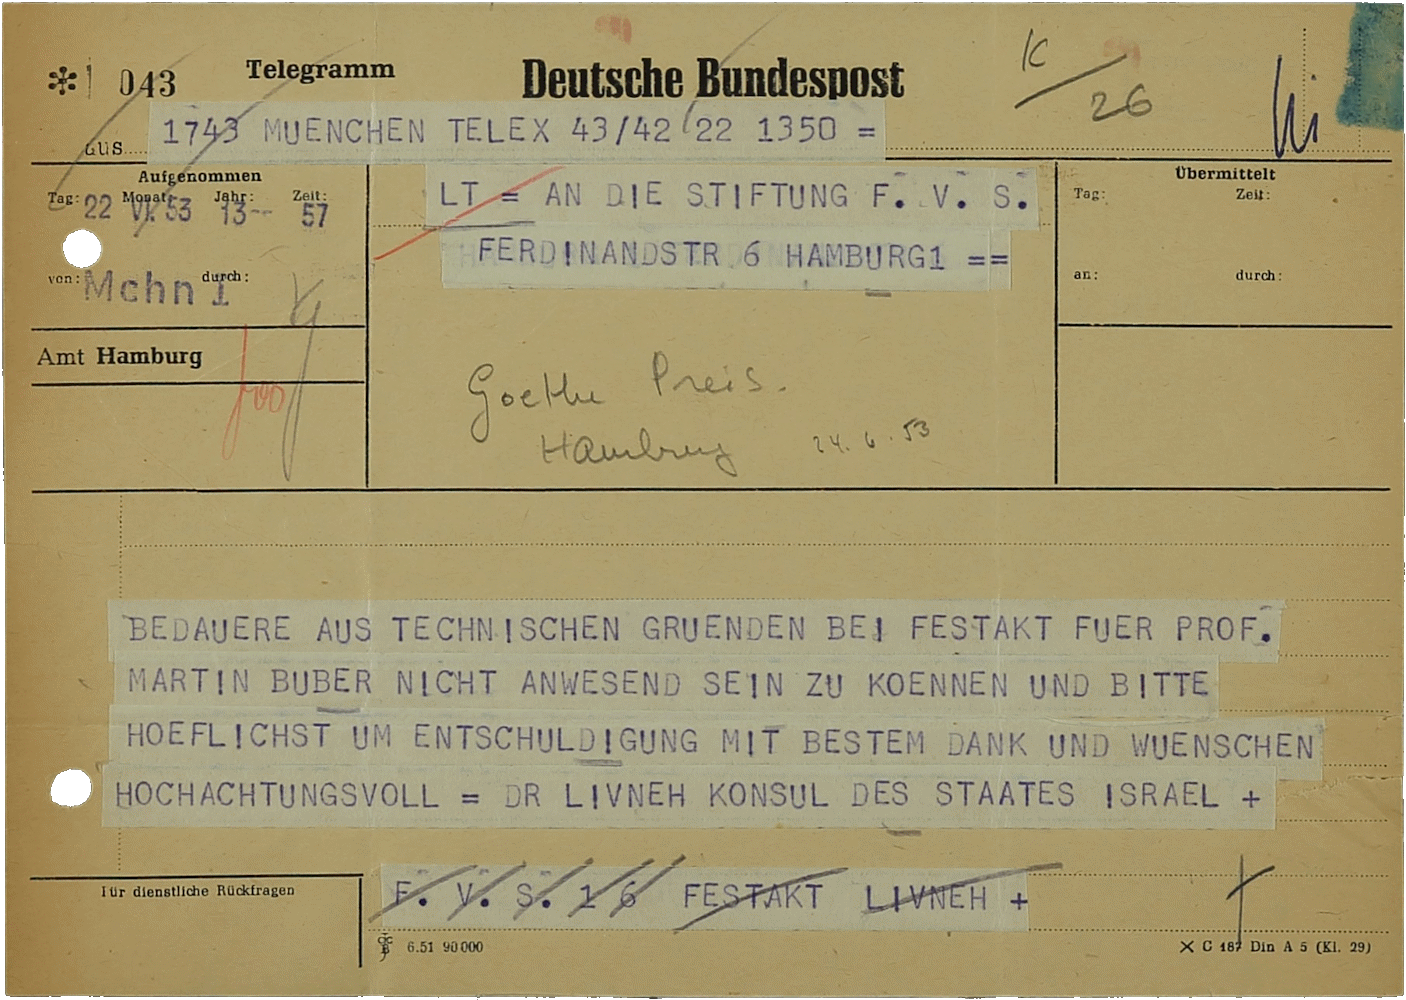 * 043 Telegramm Deutsche Bundespost K/26
aus 1743 MUENCHEN TELEX 43/42 22 1350 =
Aufgenommen
Tag: Monat: Jahr: Zeit:
22 VI. 53 13-- 57
von: Mchn 1 durch:
LT = AN DIE STIFTUNG F. V. S.
FERDINANDSTR 6 HAMBURG1 ==
Übermittelt
Tag: Zeit:
an: durch:
Amt Hamburg
Goethe Preis.
Hamburg 24.6.53
BEDAUERE AUS TECHNISCHEN GRUENDEN BEI FESTAKT FUER PROF.
MARTIN BUBER NICHT ANWESEND SEIN ZU KOENNEN UND BITTE
HOEFLICHST UM ENTSCHULDIGUNG MIT BESTEM DANK UND WUENSCHEN
HOCHACHTUNGSVOLL = DR LIVNEH KONSUL DES STAATES ISRAEL +
F. V. S. 1 6 FESTAKT LIVNEH +
Für dienstliche Rückfragen
6.51 90000
X C 187 Din A 5 (Kl. 29)